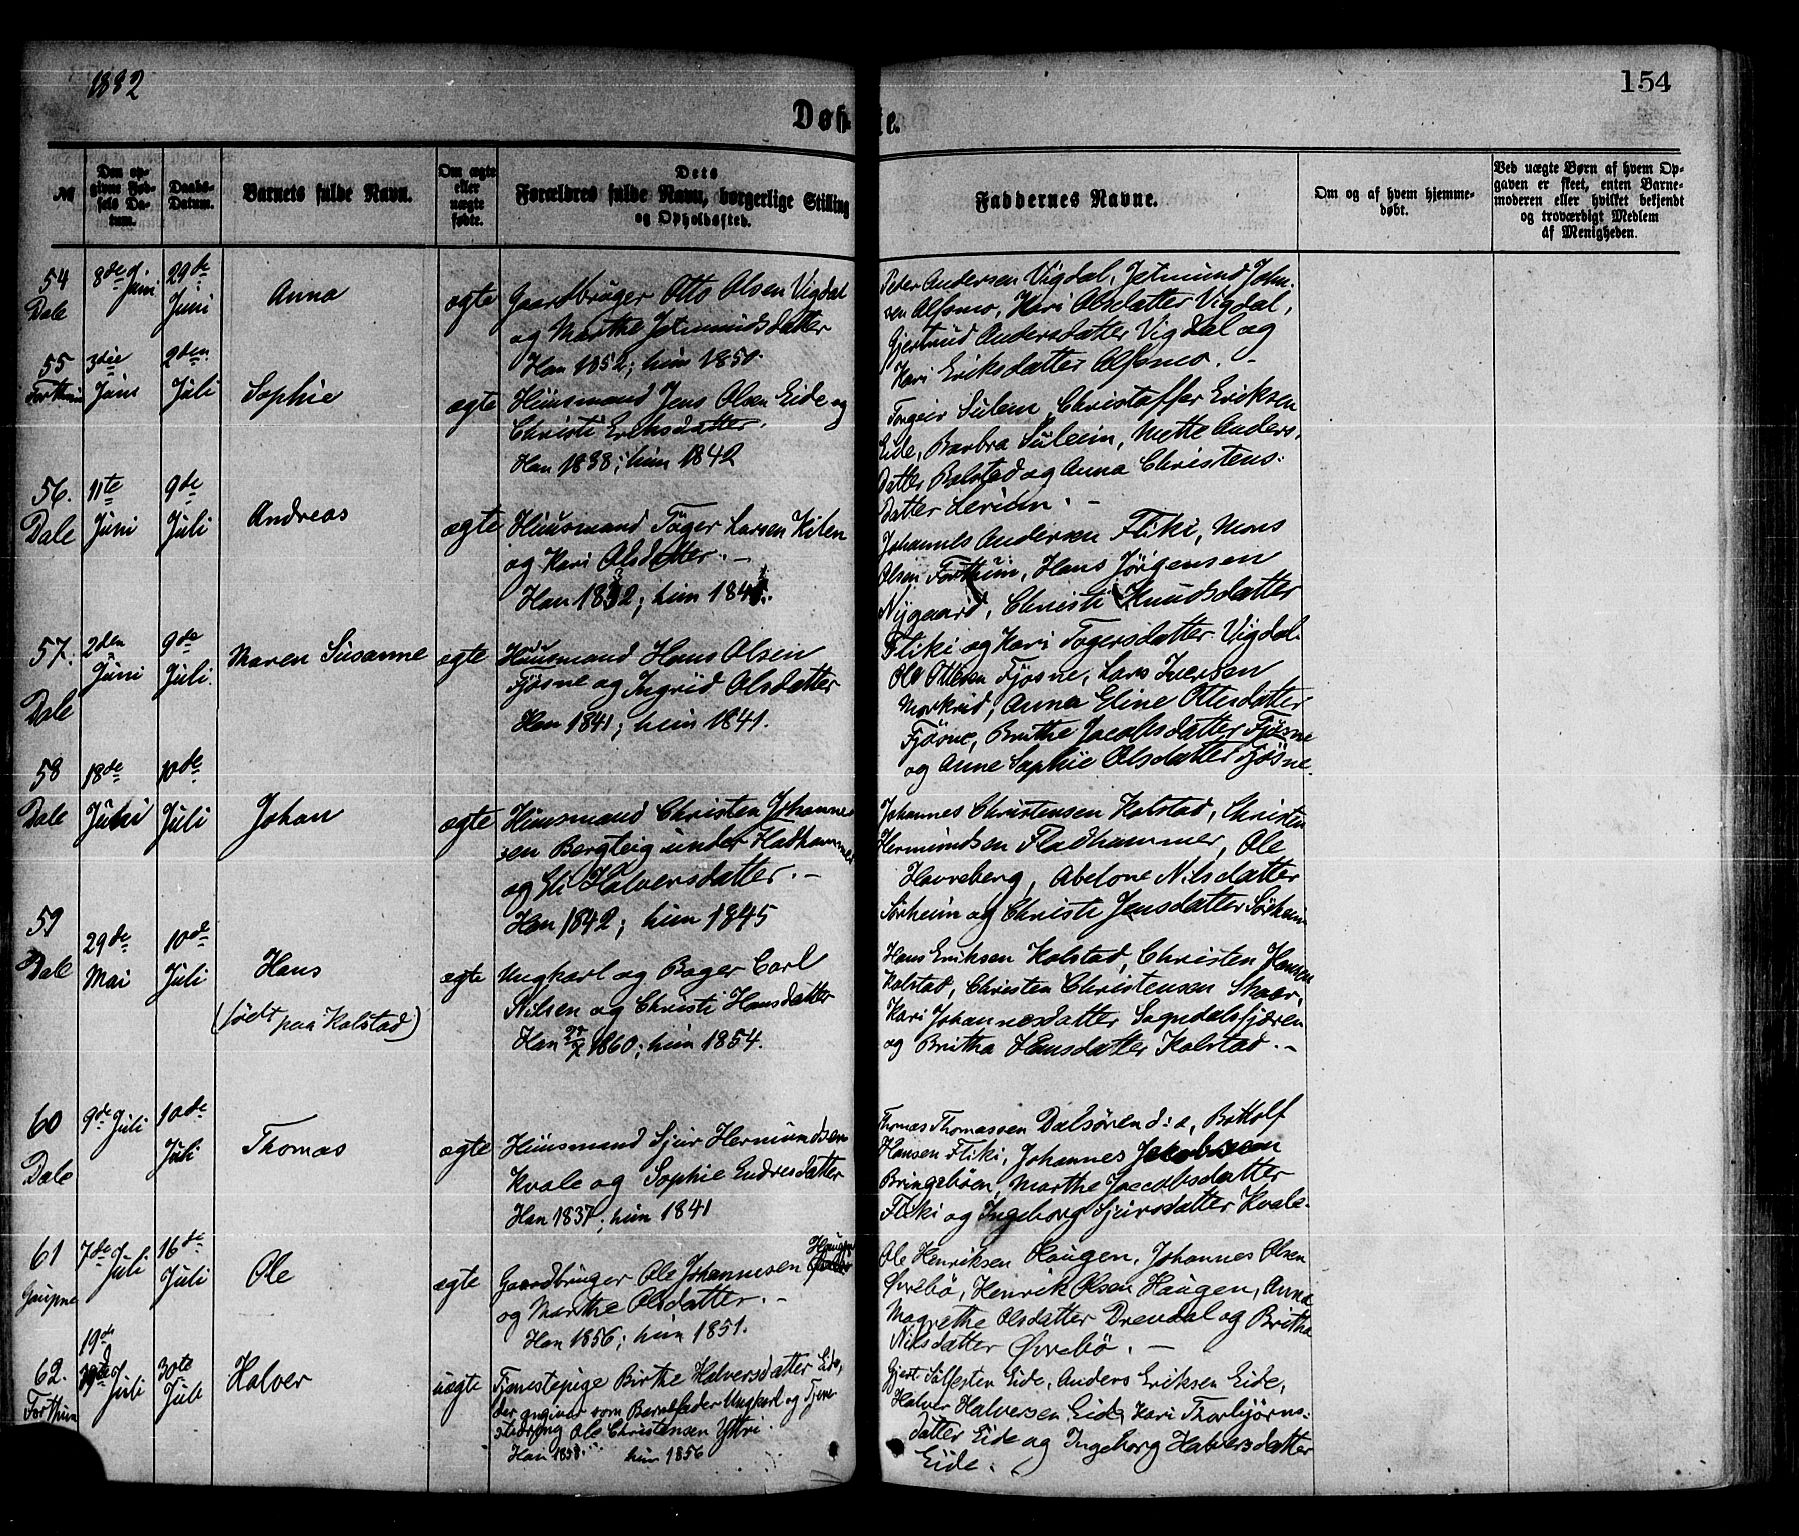 1882
154
Døbte.
№
Den opgivne Fødsels Datum.
Daabs-Datum.
Barnets fulde Navn.
Om ægte eller uægte født.
Dets Forældres fulde Navn, borgerlige Stilling og Opholdssted.
Faddernes Navne.
Om og af hvem hjemmedøbt.
Ved uægte Børn af hvem Opgaven er skeet, enten Barnemoderen eller hvilket bekjendt og troværdigt Medlem af Menigheden.
54 Dale
8de Juni
29de Juni
Anna
ægte
Gaardbruger Otto Olsen Vigdal
og Marthe Jetmundsdatter
Han 1852; hun 1850.
Peder Andersen Vigdal, Jetmund Johnsen
Alsmo, Kari Olsdatter Vigdal,
Gjertrud Andersdatter Vigdal og
Kari Eriksdatter Alsmo. -
55 Forthun
3die Juni
2den Juli
Sophie
ægte
Huusmand Jens Olsen Eide og
Christi Eriksdatter.
Han 1838; hun 1842
Torgeir Sulem, Christoffer Eriksen
Eide, Barbra Suleim, Mette Anders-
datter Bolstad og Anna Christens-
datter Lerum. -
56. Dale
11te Juni
9de Juli
Andreas
ægte
Huusmand Tøger Larsen Kilen
og Kari Olsdatter. -
Han 1832; hun 184
Johannes Andersen Fliki, Mons
Olsen Forthun, Hans Jörgensen
Nygaard, Christi Knudsdatter
Fliki og Kari Tøgersdatter Vigdal.
57. Dale
2den Juni
9de Juli.
Maren Susanne
ægte
Huusmand Hans Olsen
Fjøsne og Ingrid Olsdatter
Han 1841; hun 1841.
Ole Ottesen Fjøsne, Lars Iversen
Morkrid, Anna Eline Ottesdatter
Fjøsne, Brithe Jacobsdatter Fjøsne
og Anne Sophie Olsdatter Fjøsne.
58 Dale
18de Juni
10de Juli
Johan
ægte
Huusmand Christen Johannes-
sen Bergteig under Fladhammer
og Eli Halversdatter. -
Han 1842; hun 1845
Johannes Christensen Kolstad, Christen
Hermundsen Fladhammer, Ole
Havreberg, Abelone Nilsdatter
Sørheim og Christi Jensdatter Sørheim
59 Dale
29de Mai
10de Juli
Hans
(født paa Kolstad)
ægte
Ungkarl og Bager Carl
Nilsen og Christi Hansdatter
Han 1860; hun 1854.
Hans Eriksen Kolstad, Christen Hansen
Kolstad, Christen Christensen Skaar,
Kari Johannesdatter Sogndalsfjæren
og Britha Hansdatter Kolstad. -
60 Dale
9de Juli
10de Juli
Thomas
ægte
Huusmand Sjur Hermundsen
Kvale og Sophie Endresdatter
Han 1837; hun 1841
Thomas Thomassen Dalsøren d: æ, Botholf
Hansen Fliki, Johannes Jakobsen
Bringebøen, Marthe Jacobsdatter
Fliki og Ingeborg Sjursdatter Kvale.
61 Gaupne
7de Juli
16de Juli
Ole
ægte
Haugen
Gaardbruger Ole Johannesen
og Marthe Olsdatter. -
Han 1856; hun 1851.
Ole Henriksen Haugen, Johannes Olsen
Øvrebö, Henrik Olsen Haugen, Anna
Magrethe Olsdatter Drevdal og Britha
Nilsdatter Øvrebö. -
62. Forthun
19de Juli
30te Juli
Halver
uægte
Tjenestepige Birthe Halversdatter Eide,
der angiver som Barnefader Ungkarl og Tjene-
stedreng Ole Christensen Yttri.
Han 1858 hun 1856
Gjert Sølfesten Eide, Anders Eriksen Eide,
Halver Halversen Eide, Kari Thorbjørns-
datter Eide og Ingeborg Halversdatter
Eide.